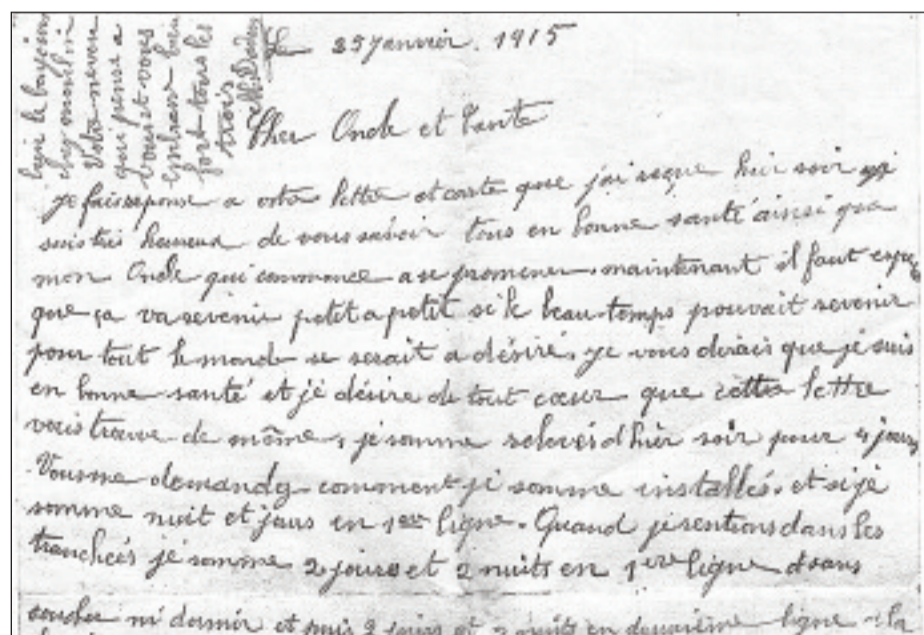 Le 29 Janvier. 1915
Cher Oncle et Tante
je fais reponse a votre lettre et carte que jai reçue hier soir
suis tres heureux de vous savoir tous en bonne santé ainsi que
mon Oncle qui commance a se promener. maintenant il faut
que ça va revenir petit a petit si le beau temps pouvait revenir
pour tout le monde se serait a désiré. je vous dirais que je suis
en bonne santé et je désire de tout cœur que cette lettre
vous trouve de même, je somme relevés d'hier soir pour 4 jours
Vous me demandez comment je somme installés. et si je
somme nuit et jours en 1ere ligne. Quand je rentions dans les
tranchées je somme 2 jours et 2 nuits en 1ere ligne sans
coucher ni dormir et puis 2 jours et 2 nuits en deuxième ligne la
Votre neveu
qui pense a
vous et vous
embrasse bien
fort tous les
trois